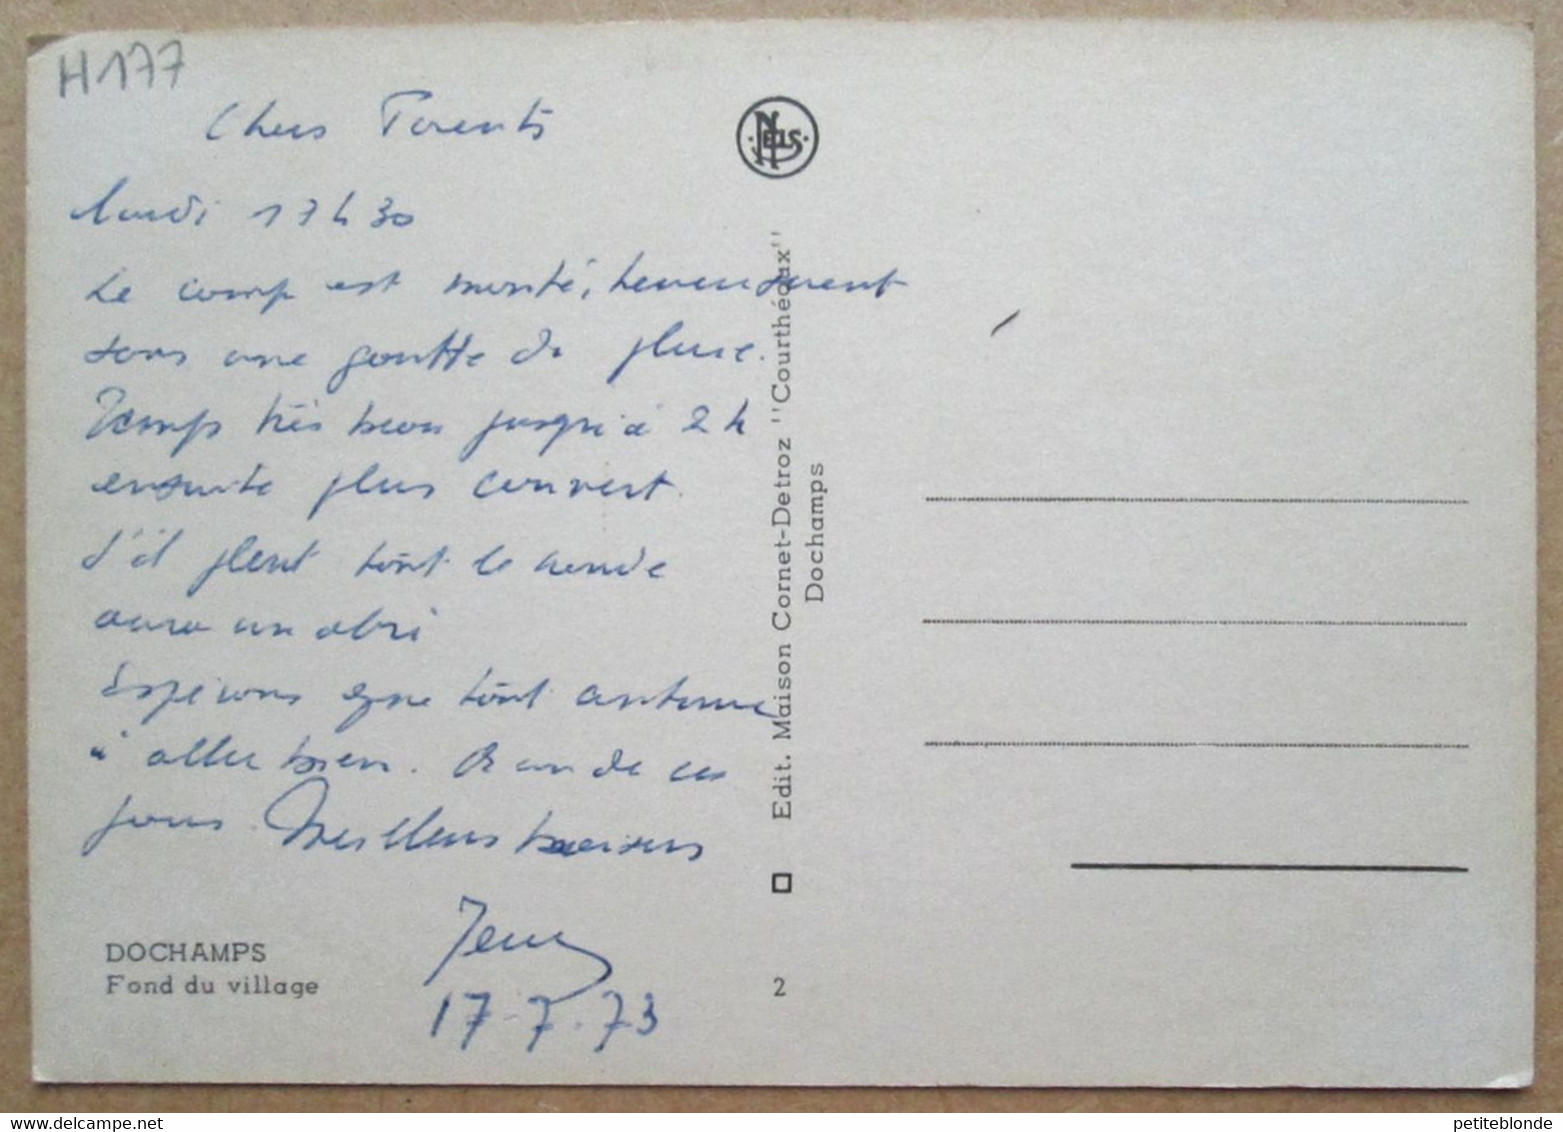 H177
Chers Parents
lundi 17 h 30
Le camp est monté, heureusement
sans une goutte de pluie.
Temps très beau jusqu'à 2 h
ensuite plus couvert.
S'il pleut tout le monde
aura un abri
Espérons que tout continue
à aller bien. de ces
jours. Meilleurs baisers
17-7-73
DOCHAMPS
Fond du village
NELS
Edit. Maison Cornet-Detroz "Courthéoux"
Dochamps
2
petiteblonde